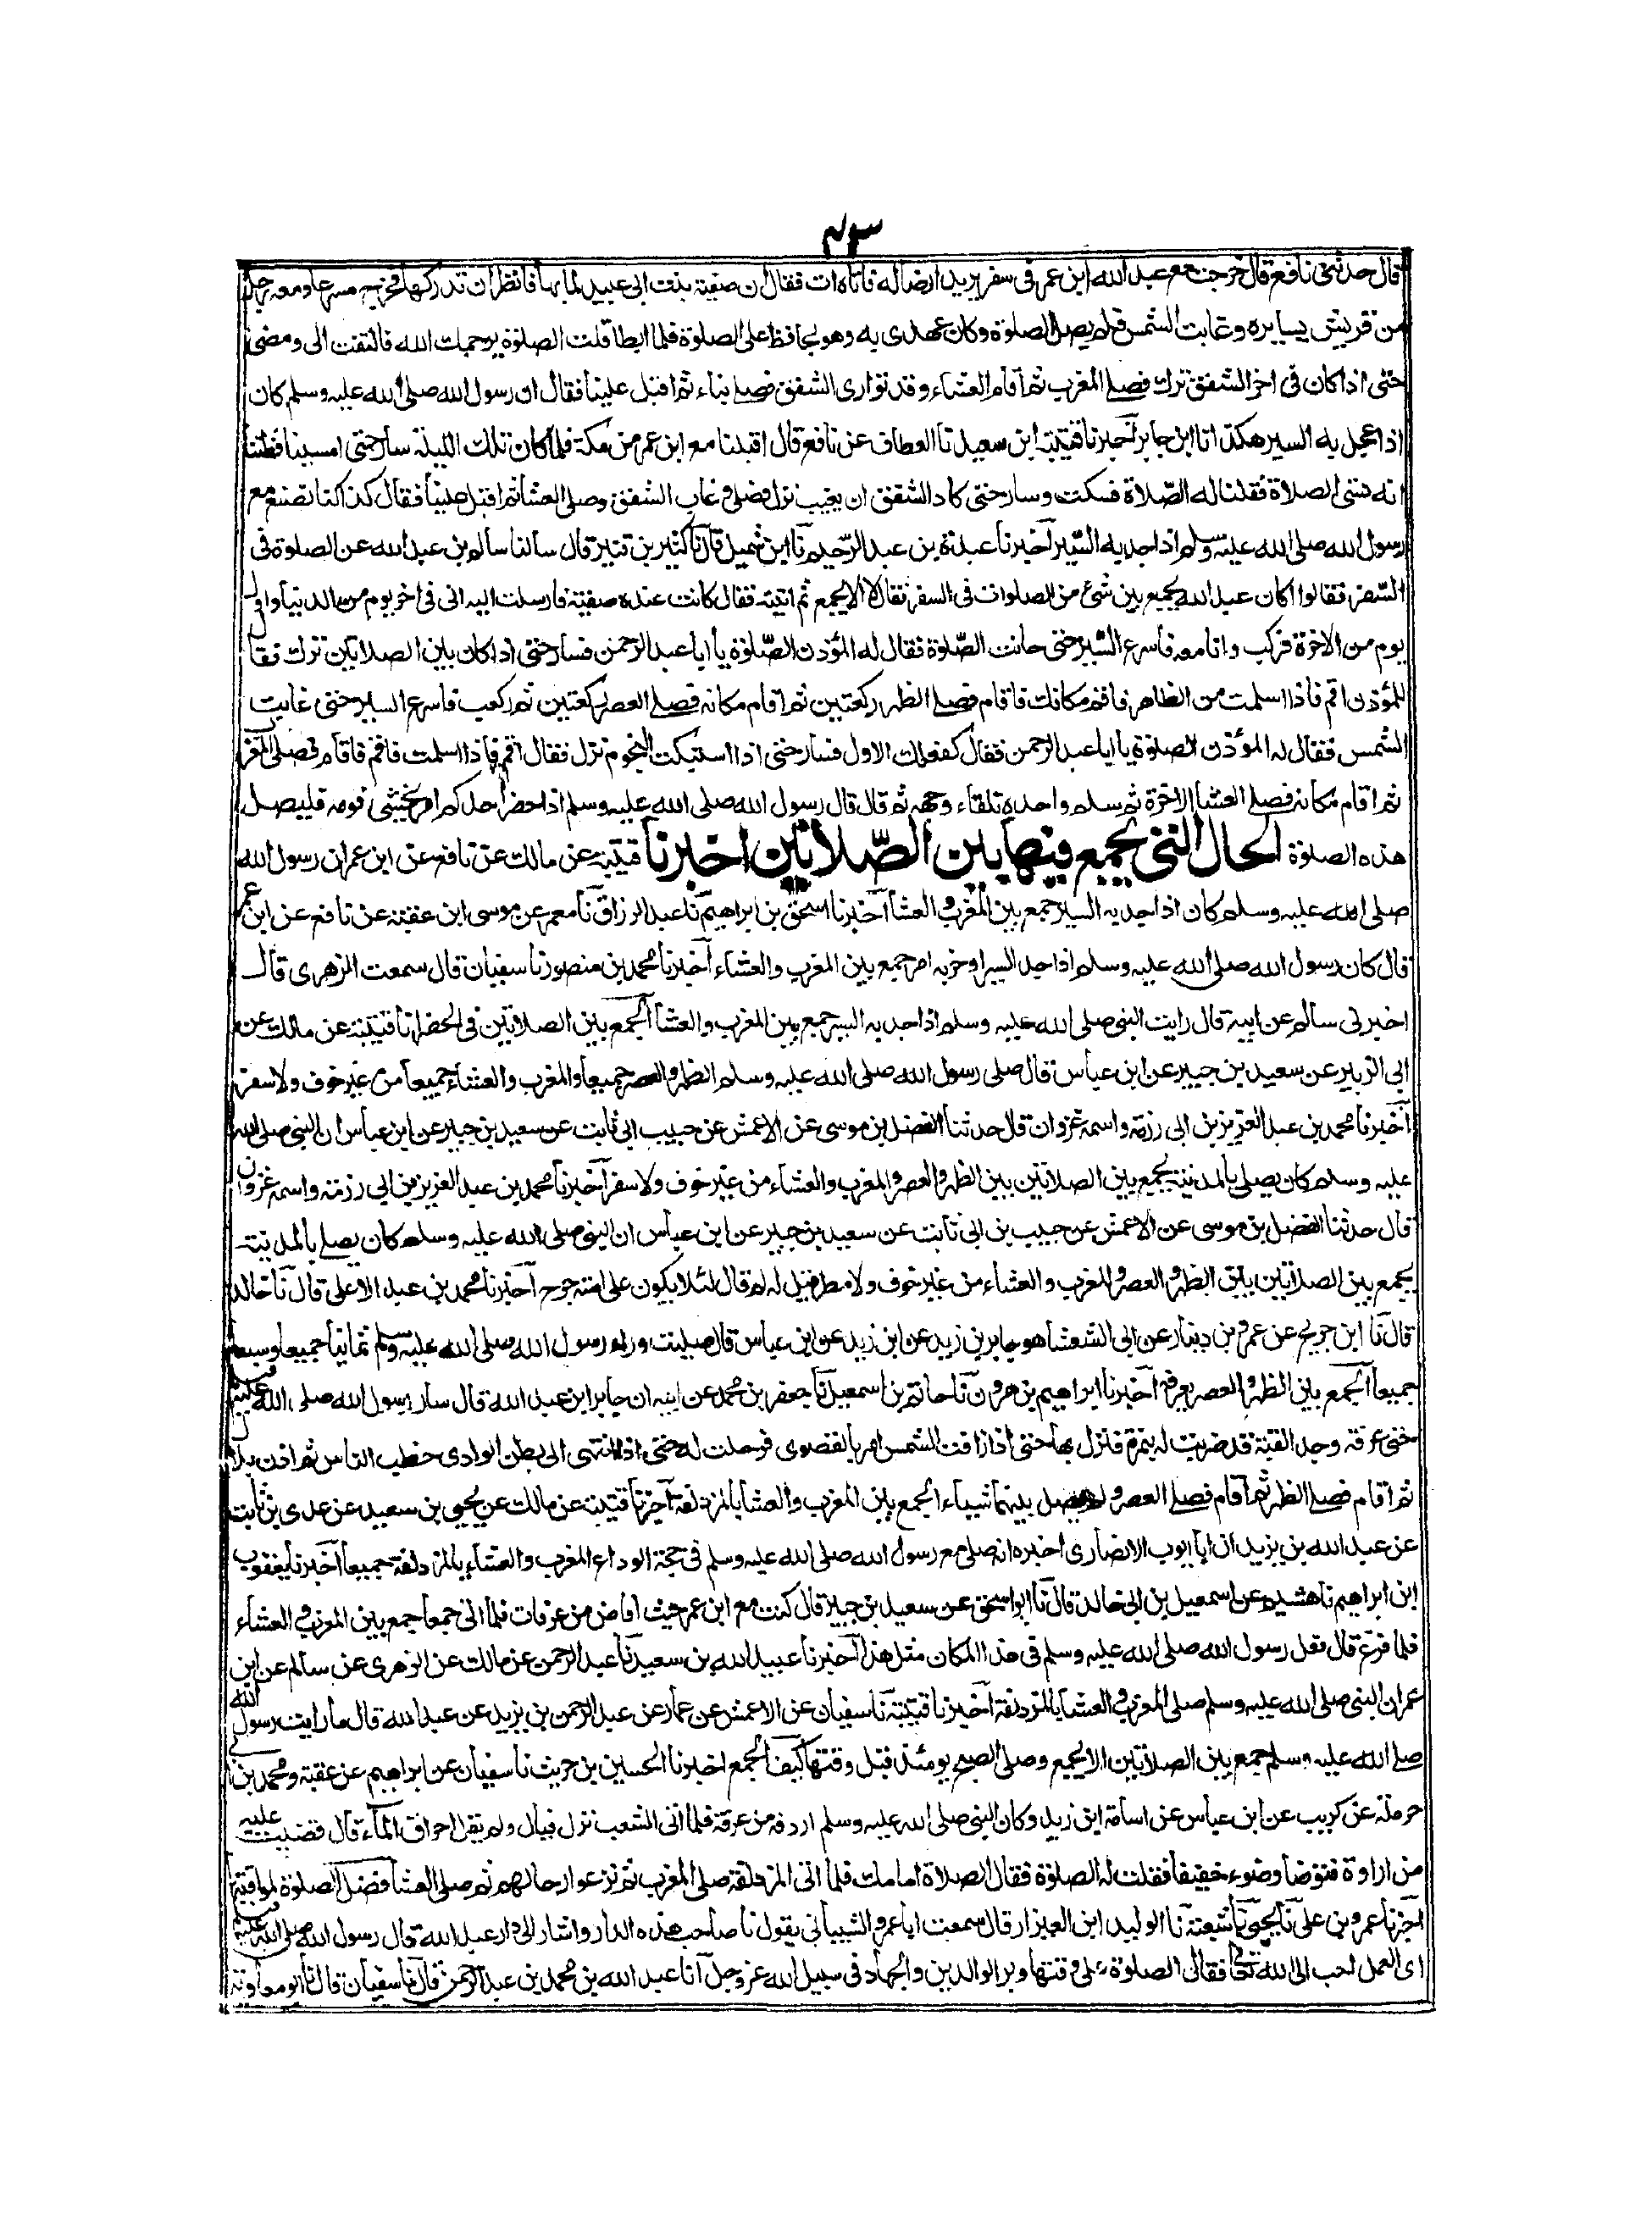 ٤٣
قال حدثني نافع قال خرجت مع عبد الله ابن عمر في سفر يريد ارضا له فاتاه ات فقال ان صفية بنت ابي عبيد لما بها فانظر ان تدركها فخرج مسرعا ومعه رجل
من قريش يسايره وغابت الشمس فلم يصل الصلوة وكان عهدى به وهو يحافظ على الصلوة فلما ابطا قلت الصلوة يرحمك الله فالتفت الى ومضى
حتى اذا كان في اخر الشفق نزل فصلى المغرب ثم اقام العشاء وقد توارى الشفق فصلى بناء ثم اقبل علينا فقال ان رسول الله صلى الله عليه وسلم كان
اذا عجل به السير هكذا انا ابن جابر اخبرنا قتيبة ابن سعيد نا العطاف عن نافع قال اقبلنا مع ابن عمر من مكة فلما كان تلك الليلة سار حتى امسينا فظننا
انه نسي الصلاة فقلنا له الصّلاة فسكت وسار حتى كاد الشفق ان يغيب نزل فصلى وغاب الشفق وصلى العشا ثم اقبل علينا فقال كذا كنا نصنع مع
رسول الله صلى الله عليه وسلم اذا جد به السّير اخبرنا عبدة بن عبد الرّحيم نا ابن شميل قال نا كثير بن قنبر قال سالنا سالم بن عبد الله عن الصلوة في
السّفر فقالوا اكان عبد الله يجمع بين شئ من الصلوات في السفر فقال لا الا بجمع ثم اتيته فقال كانت عنده صفية فارسلت اليه اني في اخر يوم من الدنيا واول
يوم من الاخرة فركب وانا معه فأسرع السّير حتى حانت الصّلوة فقال له المؤذن الصّلوة يا ابا عبد الرحمن فسار حتى اذا كان بين الصلاتين نزل فقا
للمؤذن اقم فاذا سلمت من الظاهر فاقم مكانك فاقام فصلى الظهر ركعتين ثم اقام مكانه فصلى العصر ركعتين ثم ركب فاسرع السير حتى غابت
الشمس فقال له المؤذن الصلوة يا ابا عبد الرحمن فقال كفعلك الاول فسار حتى اذا استبكت النجوم نزل فقال اقم فاذا سلمت فاقم فاقام فصلى المغرب
ثم اقام مكانه فصلى العشا الاخرة ثم سلم واحدة تلقاء وجهه ثم قال قال رسول الله صلى الله عليه وسلم اذا حضر احدكم امر يخشى فوته فليصل
هذه الصلوة الحال التي يجمع فيها بين الصّلاتين اخبرنا قتيبة عن مالك عن نافع عن ابن عمر ان رسول الله
صلى الله عليه وسلم كان اذا جد به السير جمع بين المغرب و العشا اخبرنا اسحق بن ابراهيم نا عبد الرزاق نا معمر عن موسى ابن عقبة عن نافع عن ابن عمر
قال كان رسول الله صلى الله عليه وسلم اذا جد السير او حزبه امر جمع بين المغرب والعشاء اخبرنا محمد بن منصور نا سفيان قال سمعت الزهرى قال
اخبرنى سالم عن ابيه قال رايت النبي صلى الله عليه وسلم اذا جد به السير جمع بين المغرب والعشا الجمع بين الصلاتين في الحضر انا قتيبة عن مالك عن
ابي الزبير عن سعيد بن جبير عن ابن عباس قال صلى رسول الله صلى الله عليه وسلم الظهر والعصر جميعا والمغرب والعشاء جميعا من غير خوف ولا سفر
اخبرنا محمد بن عبد العزيز بن ابى رزمة واسمه غزوان قال حدثنا الفضل بن موسى عن الاعمش عن حبيب ابي ثابت عن سعيد بن جبير عن ابن عباس ان النبي صلى الله
عليه وسلم كان يصلي بالمدينة يجمع بين الصلاتين بين الظهر والعصر والمغرب والعشاء من غير خوف ولا سفر اخبرنا محمد بن عبد العزيز بن ابي رزمة واسمه غزوان
قال حدثنا الفضل بن موسى عن الاعمش عن حبيب بن ابي ثابت عن سعيد بن جبير عن ابن عباس ان النبي صلى الله عليه وسلم كان يصلي بالمدينة
يجمع بين الصلاتين بين الظهر والعصر والمغرب والعشاء من غير خوف ولا مطر قيل له لم قال لئلا يكون على امته حرج اخبرنا محمد بن عبد الاعلى قال نا خالد
قال نا ابن جريج عن عمرو بن دينار عن ابي الشعثا هو جابر بن زيد عن ابن زيد عن ابن عباس قال صليت وراء رسول الله صلى الله عليه وسلم ثمانيا جميعا وسبعا
جميعا الجمع بين الظهر والعصر بعرفة اخبرنا ابراهيم بن هرون نا حاتم بن اسمعيل نا جعفر بن محمد عن ابيه ان جابر ابن عبد الله قال سار رسول الله صلى الله عليه وسلم
حتى عرفة وجد القبة قد ضربت له بنمرة فنزل بها حتى اذا زاغت الشمس امر بالقصوى فرحلت له حتى اذا انتهى الى بطن الوادى خطب الناس ثم اذن بلال
ثم اقام فصلى الظهر ثم اقام فصلى العصر ولم يصل بينهما شيياء الجمع بين المغرب والعشا بالمزدلفة اخبرنا قتيبة عن مالك عن يحيى بن سعيد عن عدى بن ثابت
عن عبد الله بن يزيد ان ابا ايوب الانصارى اخبره انه صلى مع رسول الله صلى الله عليه وسلم في حجة الوداع المغرب والعشاء بالمزدلفة جميعا اخبرنا يعقوب
ابن ابراهيم نا هشيم عن اسمعيل بن ابي خالد قال نا ابو اسحق عن سعيد بن جبير قال كنت مع ابن عمر حيث افاض من عرفات فلما اتى جمعا جمع بين المغرب والعشاء
فلما فرغ قال فعل رسول الله صلى الله عليه وسلم في هذا المكان مثل هذا اخبرنا عبيد الله بن سعيد نا عبد الرحمن عن مالك عن الزهرى عن سالم عن ابن
عمر ان النبي صلى الله عليه وسلم صلى المغرب و العشا بالمزدلفة اخبرنا قتيبة نا سفيان عن الاعمش عن عمار عن عبد الرحمن بن يزيد عن عبد الله قال ما رايت رسول الله
صلى الله عليه وسلم جمع بين الصلاتين الا بجمع وصلى الصبح يومئذ قبل وقتها كيف الجمع اخبرنا الحسين بن حريث نا سفيان عن ابراهيم عن عقبة ومحمد بن
حرملة عن كريب عن ابن عباس عن اسامة ابن زيد وكان النبي صلى الله عليه وسلم اردفه من عرفة فلما اتى الشعب نزل فبال ولم يقل احراق الماء قال فصببت عليه
من اداوة فتوضا وضوء خفيفا فقلت له الصلوة فقال الصلاة امامك فلما اتى المزدلفة صلى المغرب ثم نزعوا رحالهم ثم صلى العشا فضل الصلوة لمواقيتها
اخبرنا عمرو بن على نا يحيى نا شعبة نا الوليد ابن العيزار قال سمعت ابا عمرو الشيباني يقول نا صاحب هذه الدار واشار الى دار عبد الله قال رسول الله صلى الله عليه وسلم
اى العمل احب الى الله تعالى فقال الصلوة على وقتها وبر الوالدين والجهاد في سبيل الله عز وجل انا عبد الله بن محمد بن عبد الرحمن قال نا سفيان قال نا ابو معاوية